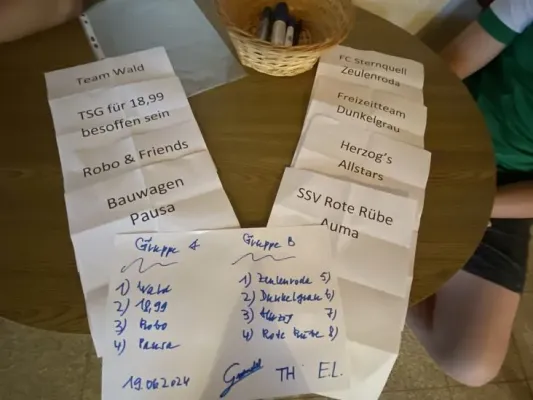 Team Wald
TSG für 18,99
besoffen sein
Robo & Friends
Bauwagen
Pausa
FC Sternquell
Zeulenroda
Freizeitteam
Dunkelgrau
Herzog's
Allstars
SSV Rote Rübe
Auma
Gruppe A
1) Wald
2) 18,99
3) Robo
4) Pausa
Gruppe B
1) Zeulenroda 5)
2) Dunkelgrau 6)
3) Herzog 7)
4) Rote Rübe 8)
19.06.2024
TH
E.L.